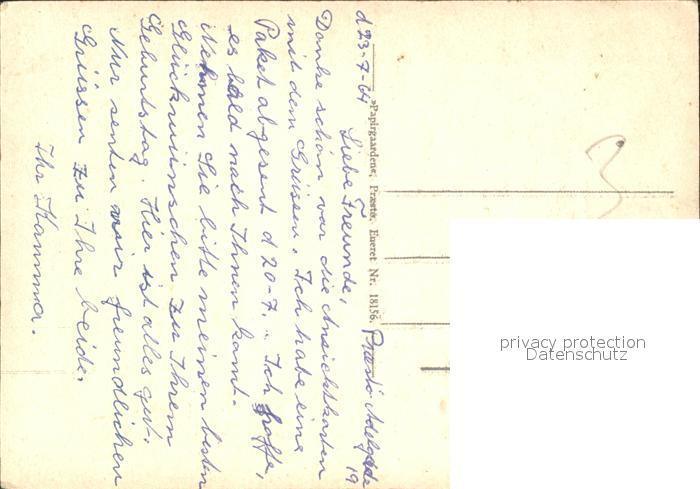 d 23-7-64
Præstö Adelgade 19
Liebe Freunde,
Danke schön var die Ansichtkarten
mit dem Grüssen. Ich habe eine
Paket abgesent d 20-7. Ich hoffe,
es bald nach Ihnen komt.
Nehmen Sie bitte meinen besten
Glückwünschen zu Ihrem
Geburtstag. Hier ist alles gut.
Nur senten wir freundlichen
Grüssen zu Ihre beide.
Ihr Hamma.
»Papirgaarden«, Præstø. Eneret Nr. 18156.
3
privacy protection
Datenschutz